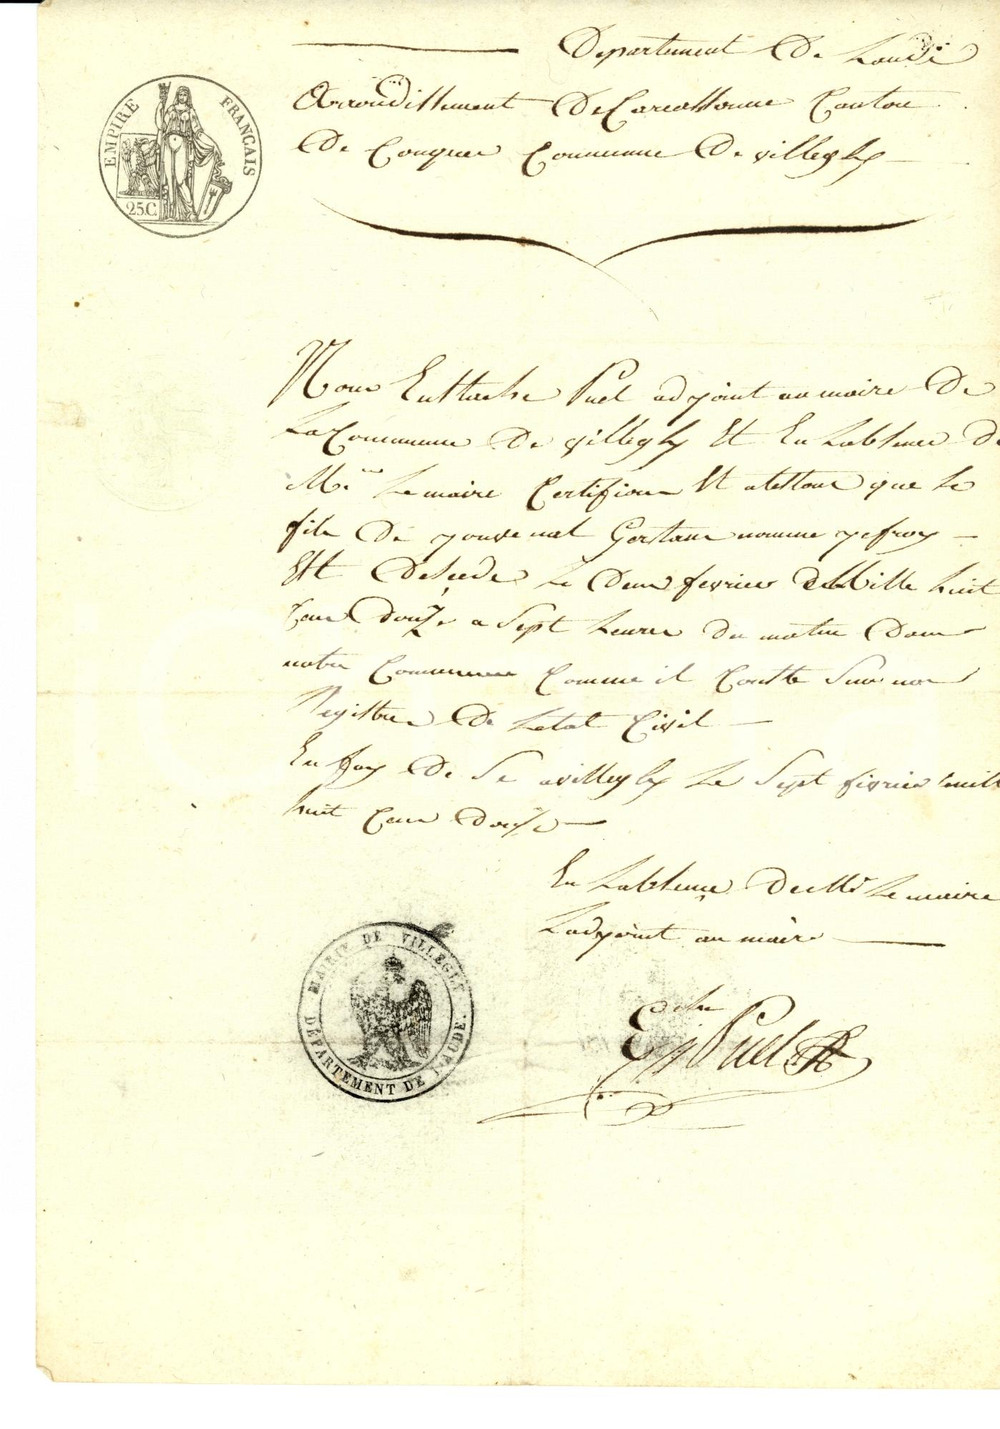 EMPIRE FRANÇAIS
25C.
Departement De Laude
Arrondissement De Carcassonne Canton
De Conques Commune De villegly
Nous Eustache Puel adjoint au maire De
La Commune De villegly Et En Labsence de
Mr. Le maire Certifions Et atestons que Le
fils De jouvenal nomme jefroy
Est Decede Le Deux fevrier Mille huit
Cens Douze a Sept heures Du matin Dans
notre Commune Comme il Conste Sur nos
Registres De Letat Civil
En foy De Se a villegly Le Sept fevrier mil
huit Cens Douze
En Labsence De Mr Le maire
Ladjoint au maire
Puel
MAIRIE DE VILLEGLY
DÉPARTEMENT DE L'AUDE.